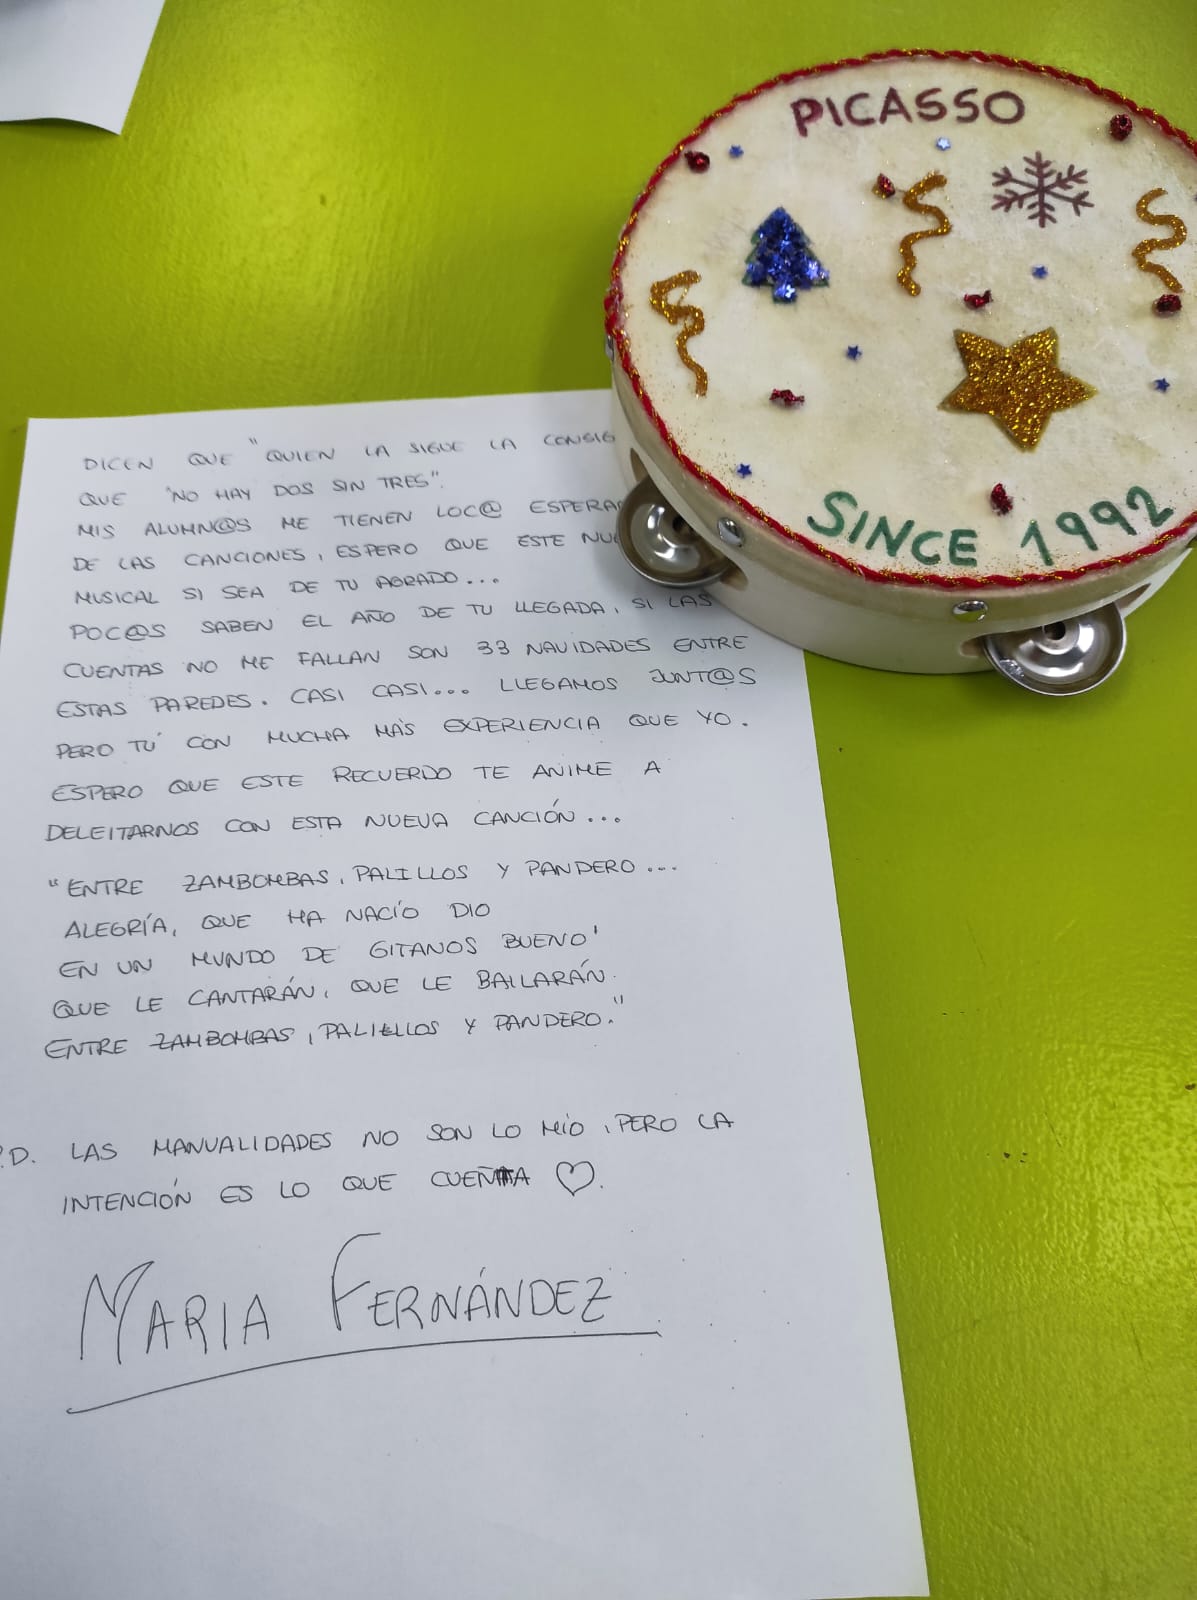 PICASSO
SINCE 1992
DICEN QUE "QUIEN LA SIGUE LA CONSIG
QUE "NO HAY DOS SIN TRES".
MIS ALUMN@S ME TIENEN LOC@ ESPERA
DE LAS CANCIONES, ESPERO QUE ESTE NU
MUSICAL SI SEA DE TU AGRADO...
POC@S SABEN EL AÑO DE TU LLEGADA, SI LAS
CUENTAS NO ME FALLAN SON 33 NAVIDADES ENTRE
ESTAS PAREDES. CASI CASI... LLEGAMOS JUNT@S
PERO TÚ CON MUCHA MÁS EXPERIENCIA QUE YO.
ESPERO QUE ESTE RECUERDO TE ANIME A
DELEITARNOS CON ESTA NUEVA CANCIÓN...
"ENTRE ZAMBOMBAS, PALILLOS Y PANDERO...
ALEGRÍA, QUE HA NACÍO DIO
EN UN MUNDO DE GITANOS BUENO'
QUE LE CANTARÁN, QUE LE BAILARÁN.
ENTRE ZAMBOMBAS, PALILLOS Y PANDERO."
P.D. LAS MANUALIDADES NO SON LO MÍO, PERO LA
INTENCIÓN ES LO QUE CUENTA ♡.
MARIA FERNÁNDEZ